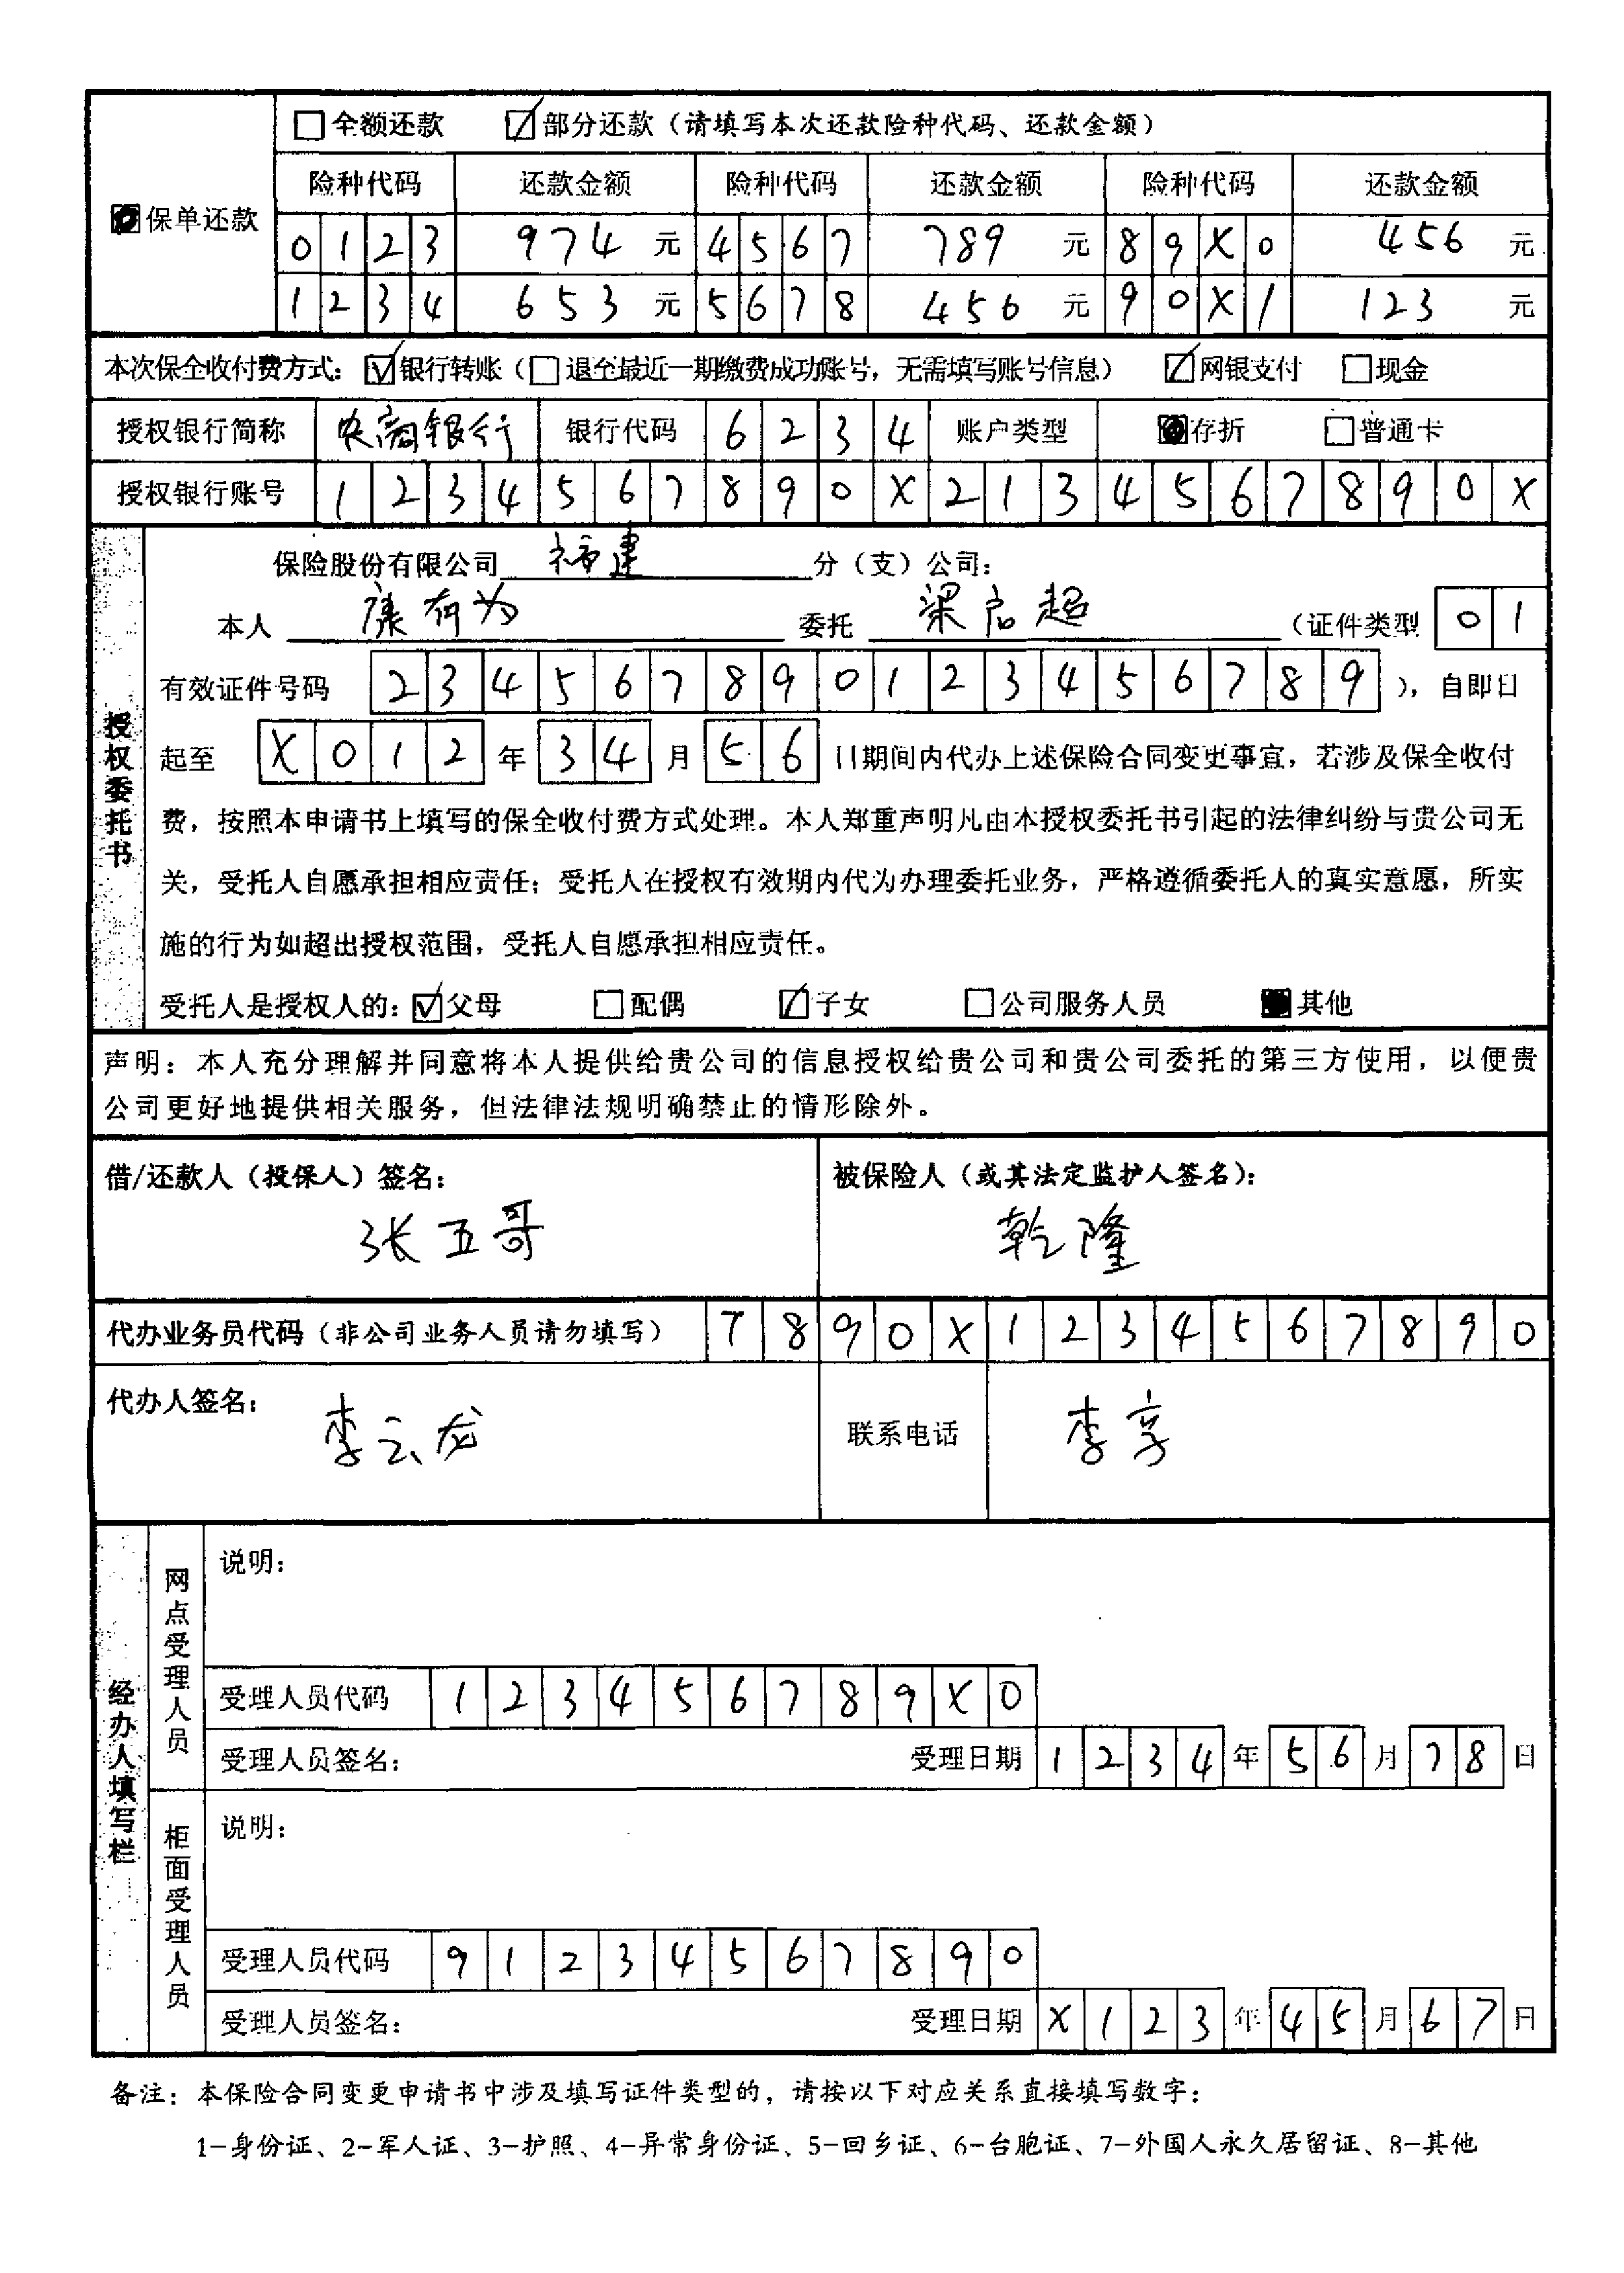 □全额还款 ☑部分还款（请填写本次还款险种代码、还款金额）
险种代码 还款金额 险种代码 还款金额 险种代码 还款金额
保单还款
0123 974 元 4567 789 元 89X0 456 元
1234 653 元 5678 456 元 90X1 123 元
本次保全收付费方式：☑银行转账（□退至最近一期缴费成功账号，无需填写账号信息） ☑网银支付 □现金
授权银行简称 银行 银行代码 6234 账户类型 ■存折 □普通卡
授权银行账号 1234567890X2134567890X
授权委托书
保险股份有限公司 福建 分（支）公司：
本人 康有为 委托 梁启超 （证件类型 01
有效证件号码 234567890123456789 ），自即日
起至 X012 年 34 月 56 日期间内代办上述保险合同变更事宜，若涉及保全收付
费，按照本申请书上填写的保全收付费方式处理。本人郑重声明凡由本授权委托书引起的法律纠纷与贵公司无
关，受托人自愿承担相应责任；受托人在授权有效期内代为办理委托业务，严格遵循委托人的真实意愿，所实
施的行为如超出授权范围，受托人自愿承担相应责任。
受托人是授权人的：☑父母 □配偶 ☑子女 □公司服务人员 ■其他
声明：本人充分理解并同意将本人提供给贵公司的信息授权给贵公司和贵公司委托的第三方使用，以便贵
公司更好地提供相关服务，但法律法规明确禁止的情形除外。
借/还款人（投保人）签名： 被保险人（或其法定监护人签名）：
张五哥 乾隆
代办业务员代码（非公司业务人员请勿填写） 7890X1234567890
代办人签名： 李云龙 联系电话 李享
经办人填写栏
网点受理人员
说明：
受理人员代码 123456789X0
受理人员签名： 受理日期 1234 年 56 月 78 日
柜面受理人员
说明：
受理人员代码 91234567890
受理人员签名： 受理日期 X123 年 45 月 67 日
备注：本保险合同变更申请书中涉及填写证件类型的，请按以下对应关系直接填写数字：
1-身份证、2-军人证、3-护照、4-异常身份证、5-回乡证、6-台胞证、7-外国人永久居留证、8-其他